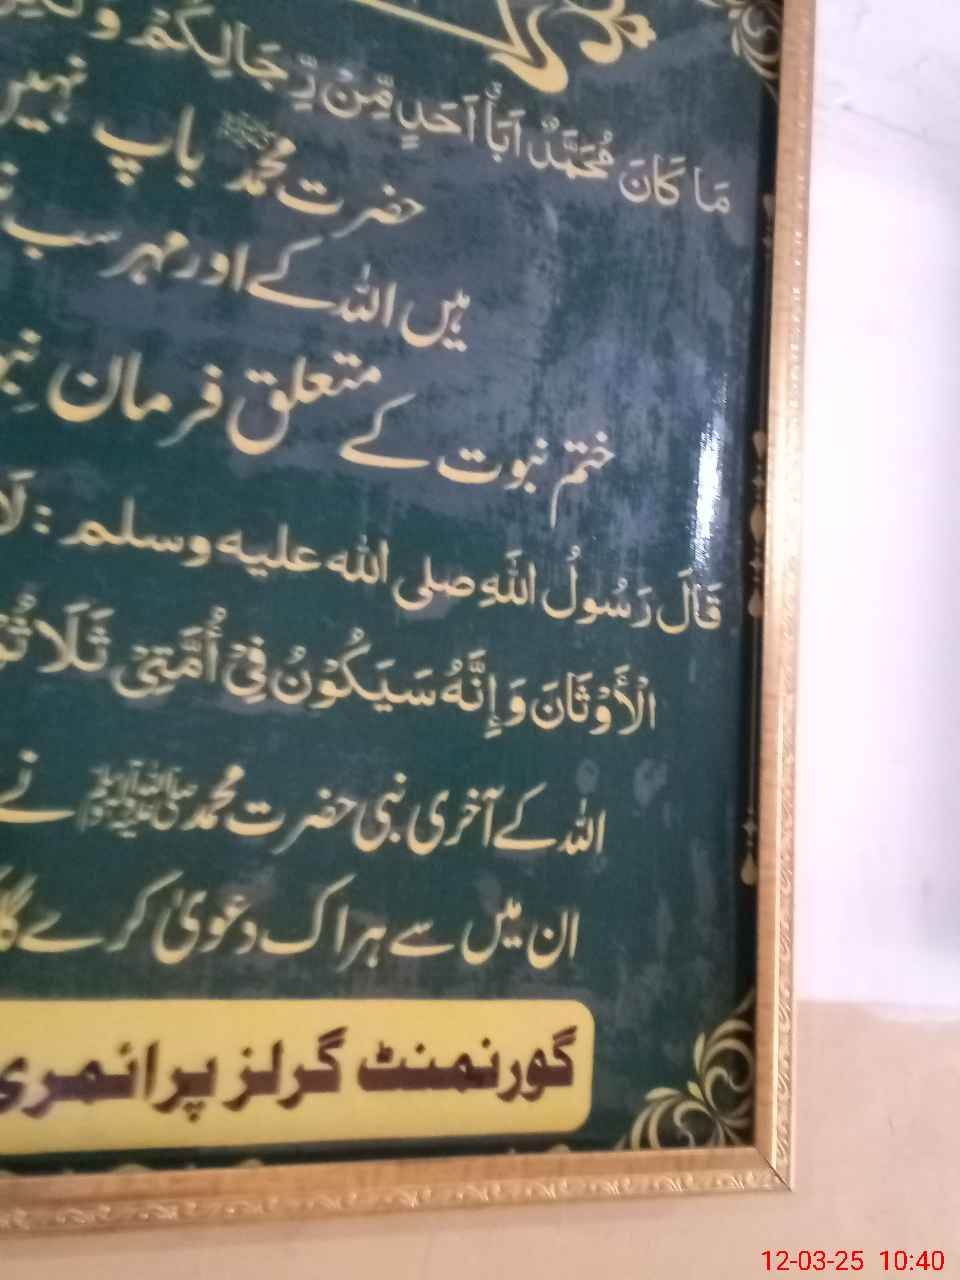 مَا كَانَ مُحَمَّدٌ اَبَآ اَحَدٍ مِّنْ رِّجَالِكُمْ وَ
حضرت محمد ﷺ باپ نہیں
ہیں اللہ کے اور مہر سب
ختم نبوت کے متعلق فرمان
قَالَ رَسُولُ اللَّهِ صلى الله عليه وسلم : لَا
الْأَوْثَانَ وَإِنَّهُ سَيَكُوْنُ فِيْ أُمَّتِيْ
اللہ کے آخری نبی حضرت محمد ﷺ نے
ان میں سے ہر اک دعویٰ کرے گا
گورنمنٹ گرلز پرائمری
12-03-25 10:40